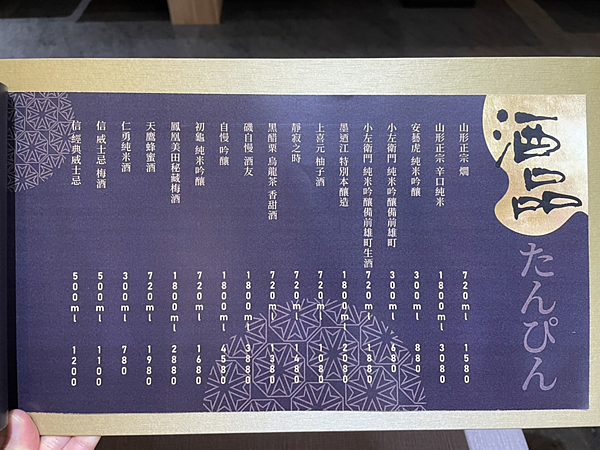 酒
たんぴん
山形正宗 燗 720ml 1580
山形正宗 辛口純米 1800ml 3080
安藝虎 純米吟醸 300ml 880
小左衛門 純米吟釀備前雄町 300ml 680
小左衛門 純米吟釀備前雄町生酒 720ml 1880
墨廼江 特別本釀造 1800ml 2080
上喜元 柚子酒 720ml 1080
靜寂之時 720ml 1480
黑醋栗 烏龍茶 香甜酒 720ml 1380
磯自慢 酒友 1800ml 3880
自慢 吟釀 1800ml 4580
初龜 純米吟釀 720ml 1680
鳳凰美田秘藏梅酒 1800ml 2880
天鷹蜂蜜酒 720ml 1980
仁勇純米酒 300ml 780
信 威士忌 梅酒 500ml 1100
信 經典威士忌 500ml 1200